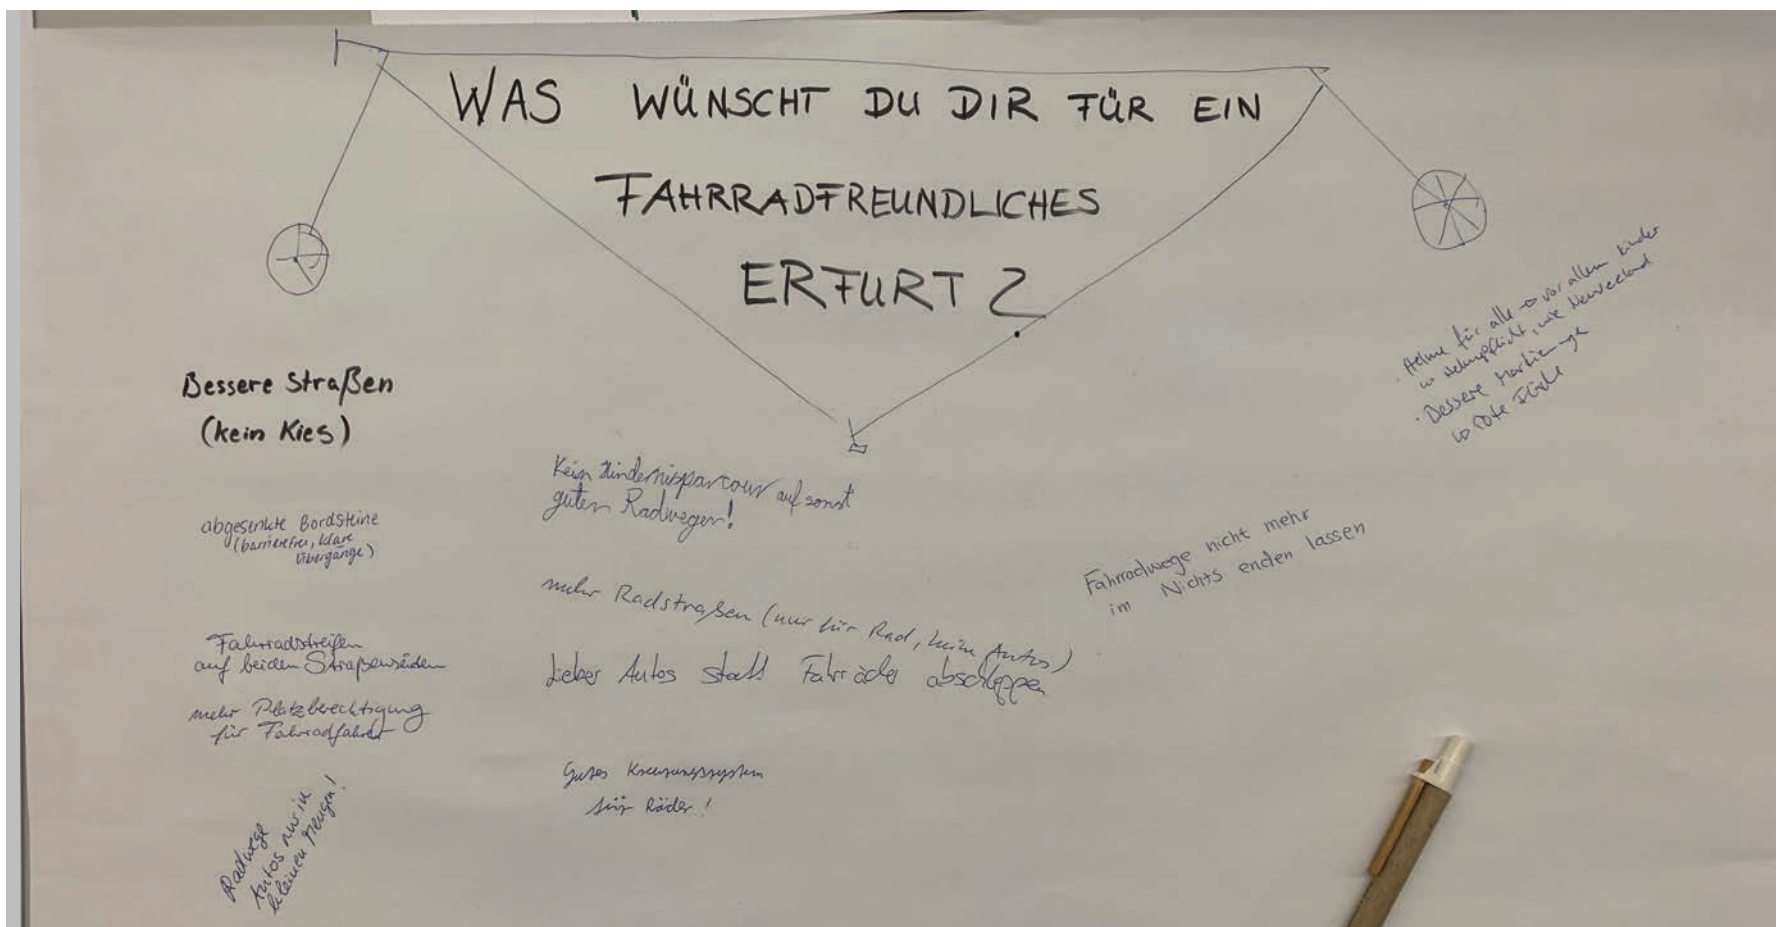 WAS WÜNSCHT DU DIR FÜR EIN
FAHRRADFREUNDLICHES
ERFURT?
Bessere Straßen
(kein Kies)
abgesenkte Bordsteine
(barrierefrei, klare
Übergänge)
Fahrradstreifen
auf beiden Straßenseiten
mehr Platzberechtigung
für Fahrradfahrer
Radwege
Autos nur in
kleinen Mengen!
Kein Hindernisparcour auf sonst
guten Radwegen!
mehr Radstraßen (nur für Rad, keine Autos)
Lieber Autos statt Fahrräder abschleppen
Gutes Kreuzungssystem
für Räder!
Fahrradwege nicht mehr
im Nichts enden lassen
Helme für alle → vor allem Kinder
↳ Helmpflicht, wie Neuseeland
· Bessere Markierunge
↳ rote Fläche